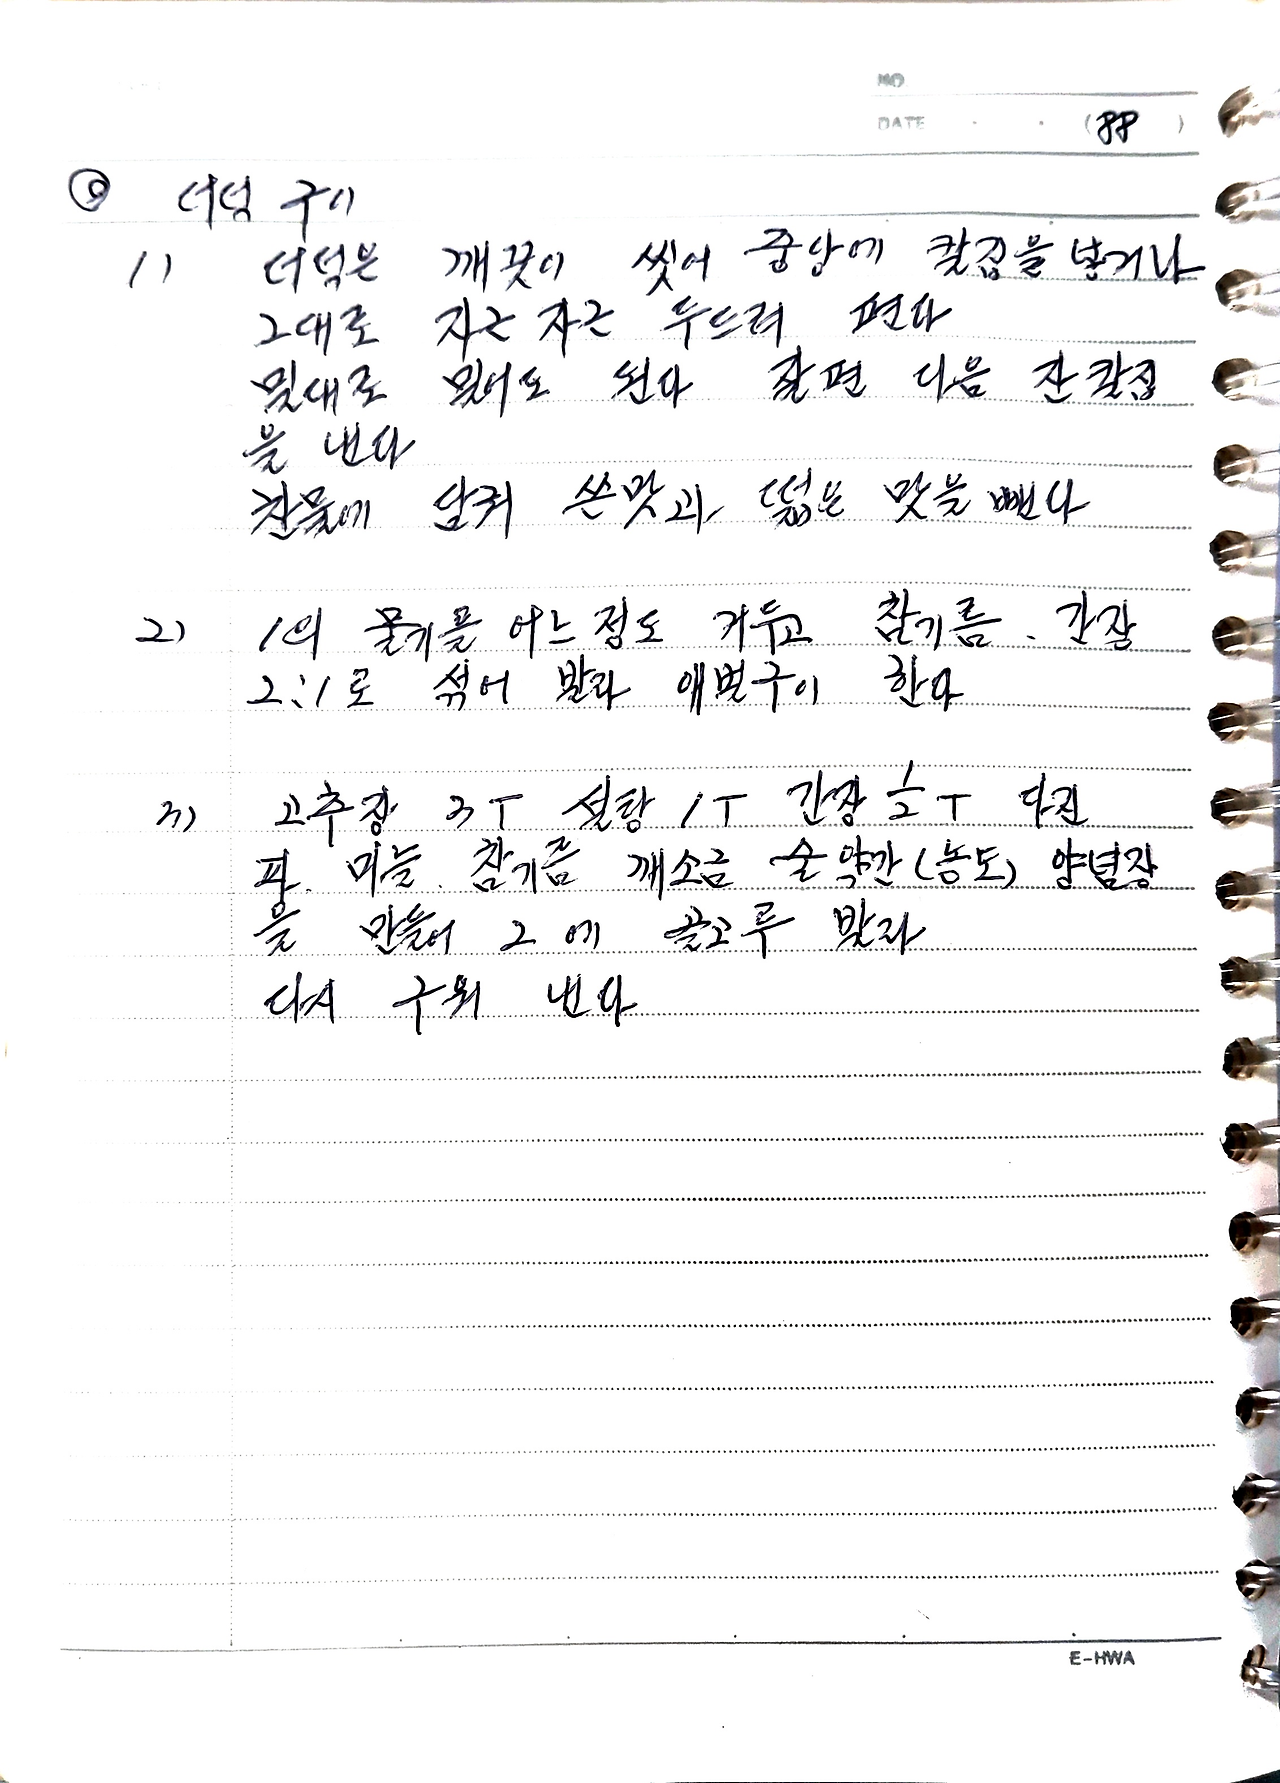 NO
DATE . . (88)
◎ 더덕 구이
1) 더덕은 깨끗이 씻어 중앙에 칼집을 넣거나
그대로 자근 자근 두드려 편다
밀대로 밀어도 된다 잘편 다음 잔칼집
을 낸다
찬물에 담궈 쓴맛과 떫은 맛을 뺀다
2) 1의 물기를 어느정도 거두고 참기름. 간장
2:1로 섞어 발라 애벌구이 한다
3) 고추장 3T 설탕 1T 간장 1/2 T 다진
파. 마늘. 참기름 깨소금 술 약간(농도) 양념장
을 만들어 2에 골고루 발라
다시 구워 낸다
E-HWA